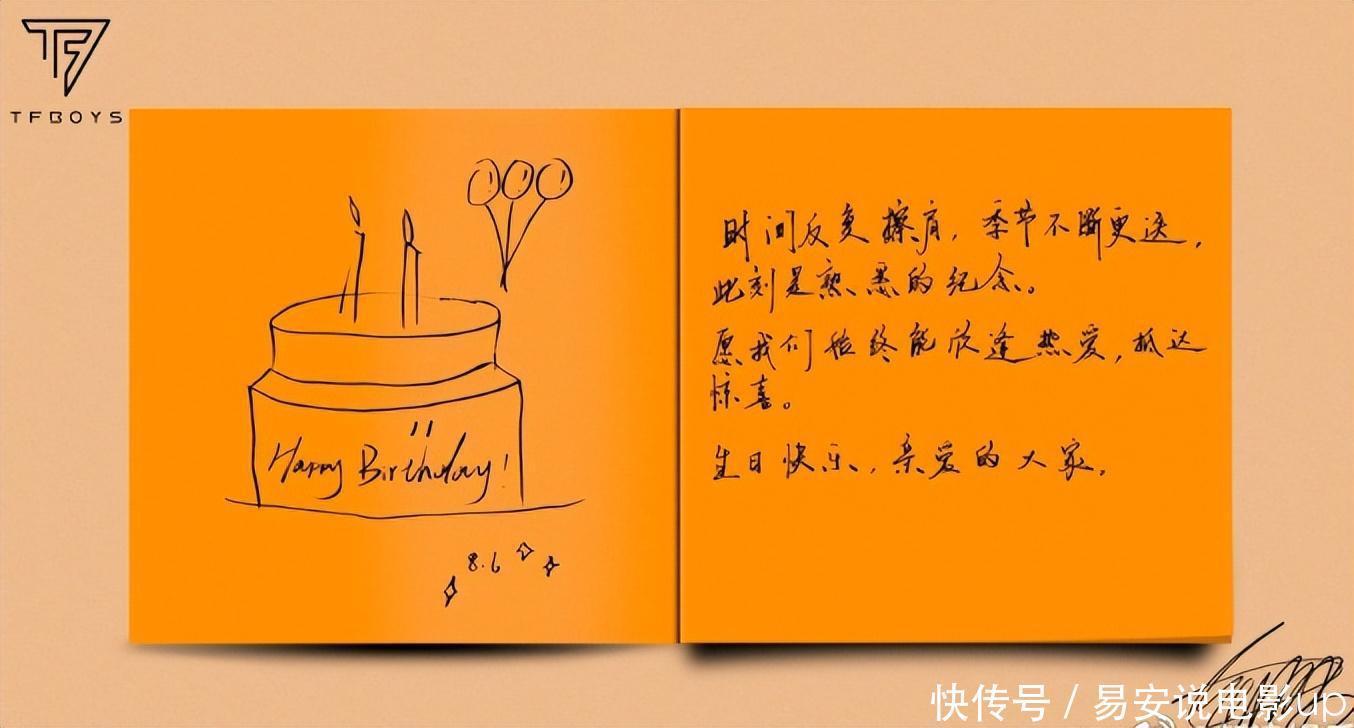 TFBOYS
Happy Birthday!
8.6
时间反复擦肩，季节不断更迭，
此刻是熟悉的纪念。
愿我们始终能欣逢热爱，抵达
惊喜。
生日快乐，亲爱的大家。
快传号 / 易安说电影up